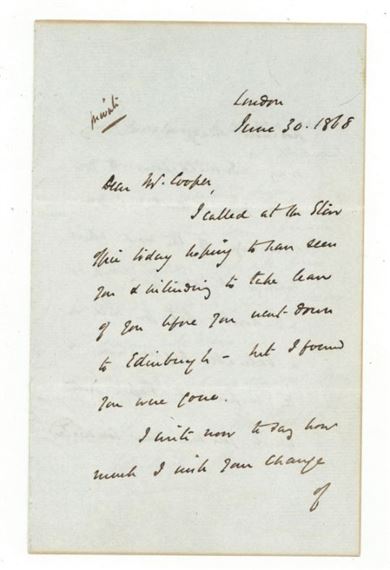 private
London
June 30. 1868
Dear Mr. Cooper,
I called at the Star
Office today hoping to have seen
you & intending to take leave
of you before you went down
to Edinburgh - but I found
you were gone.
I write now to say how
much I wish your change
of